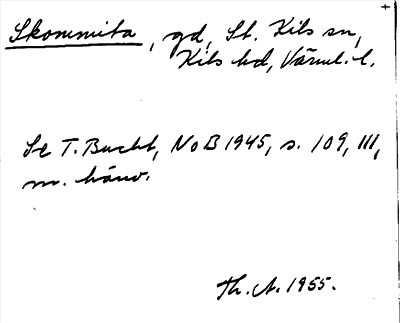 Skommita, gd, St. Kils sn,
Kils hd, Värml. l.
Se T. Bucht, NoB 1945, s. 109, III,
m. hänv.
Th. A. 1955.